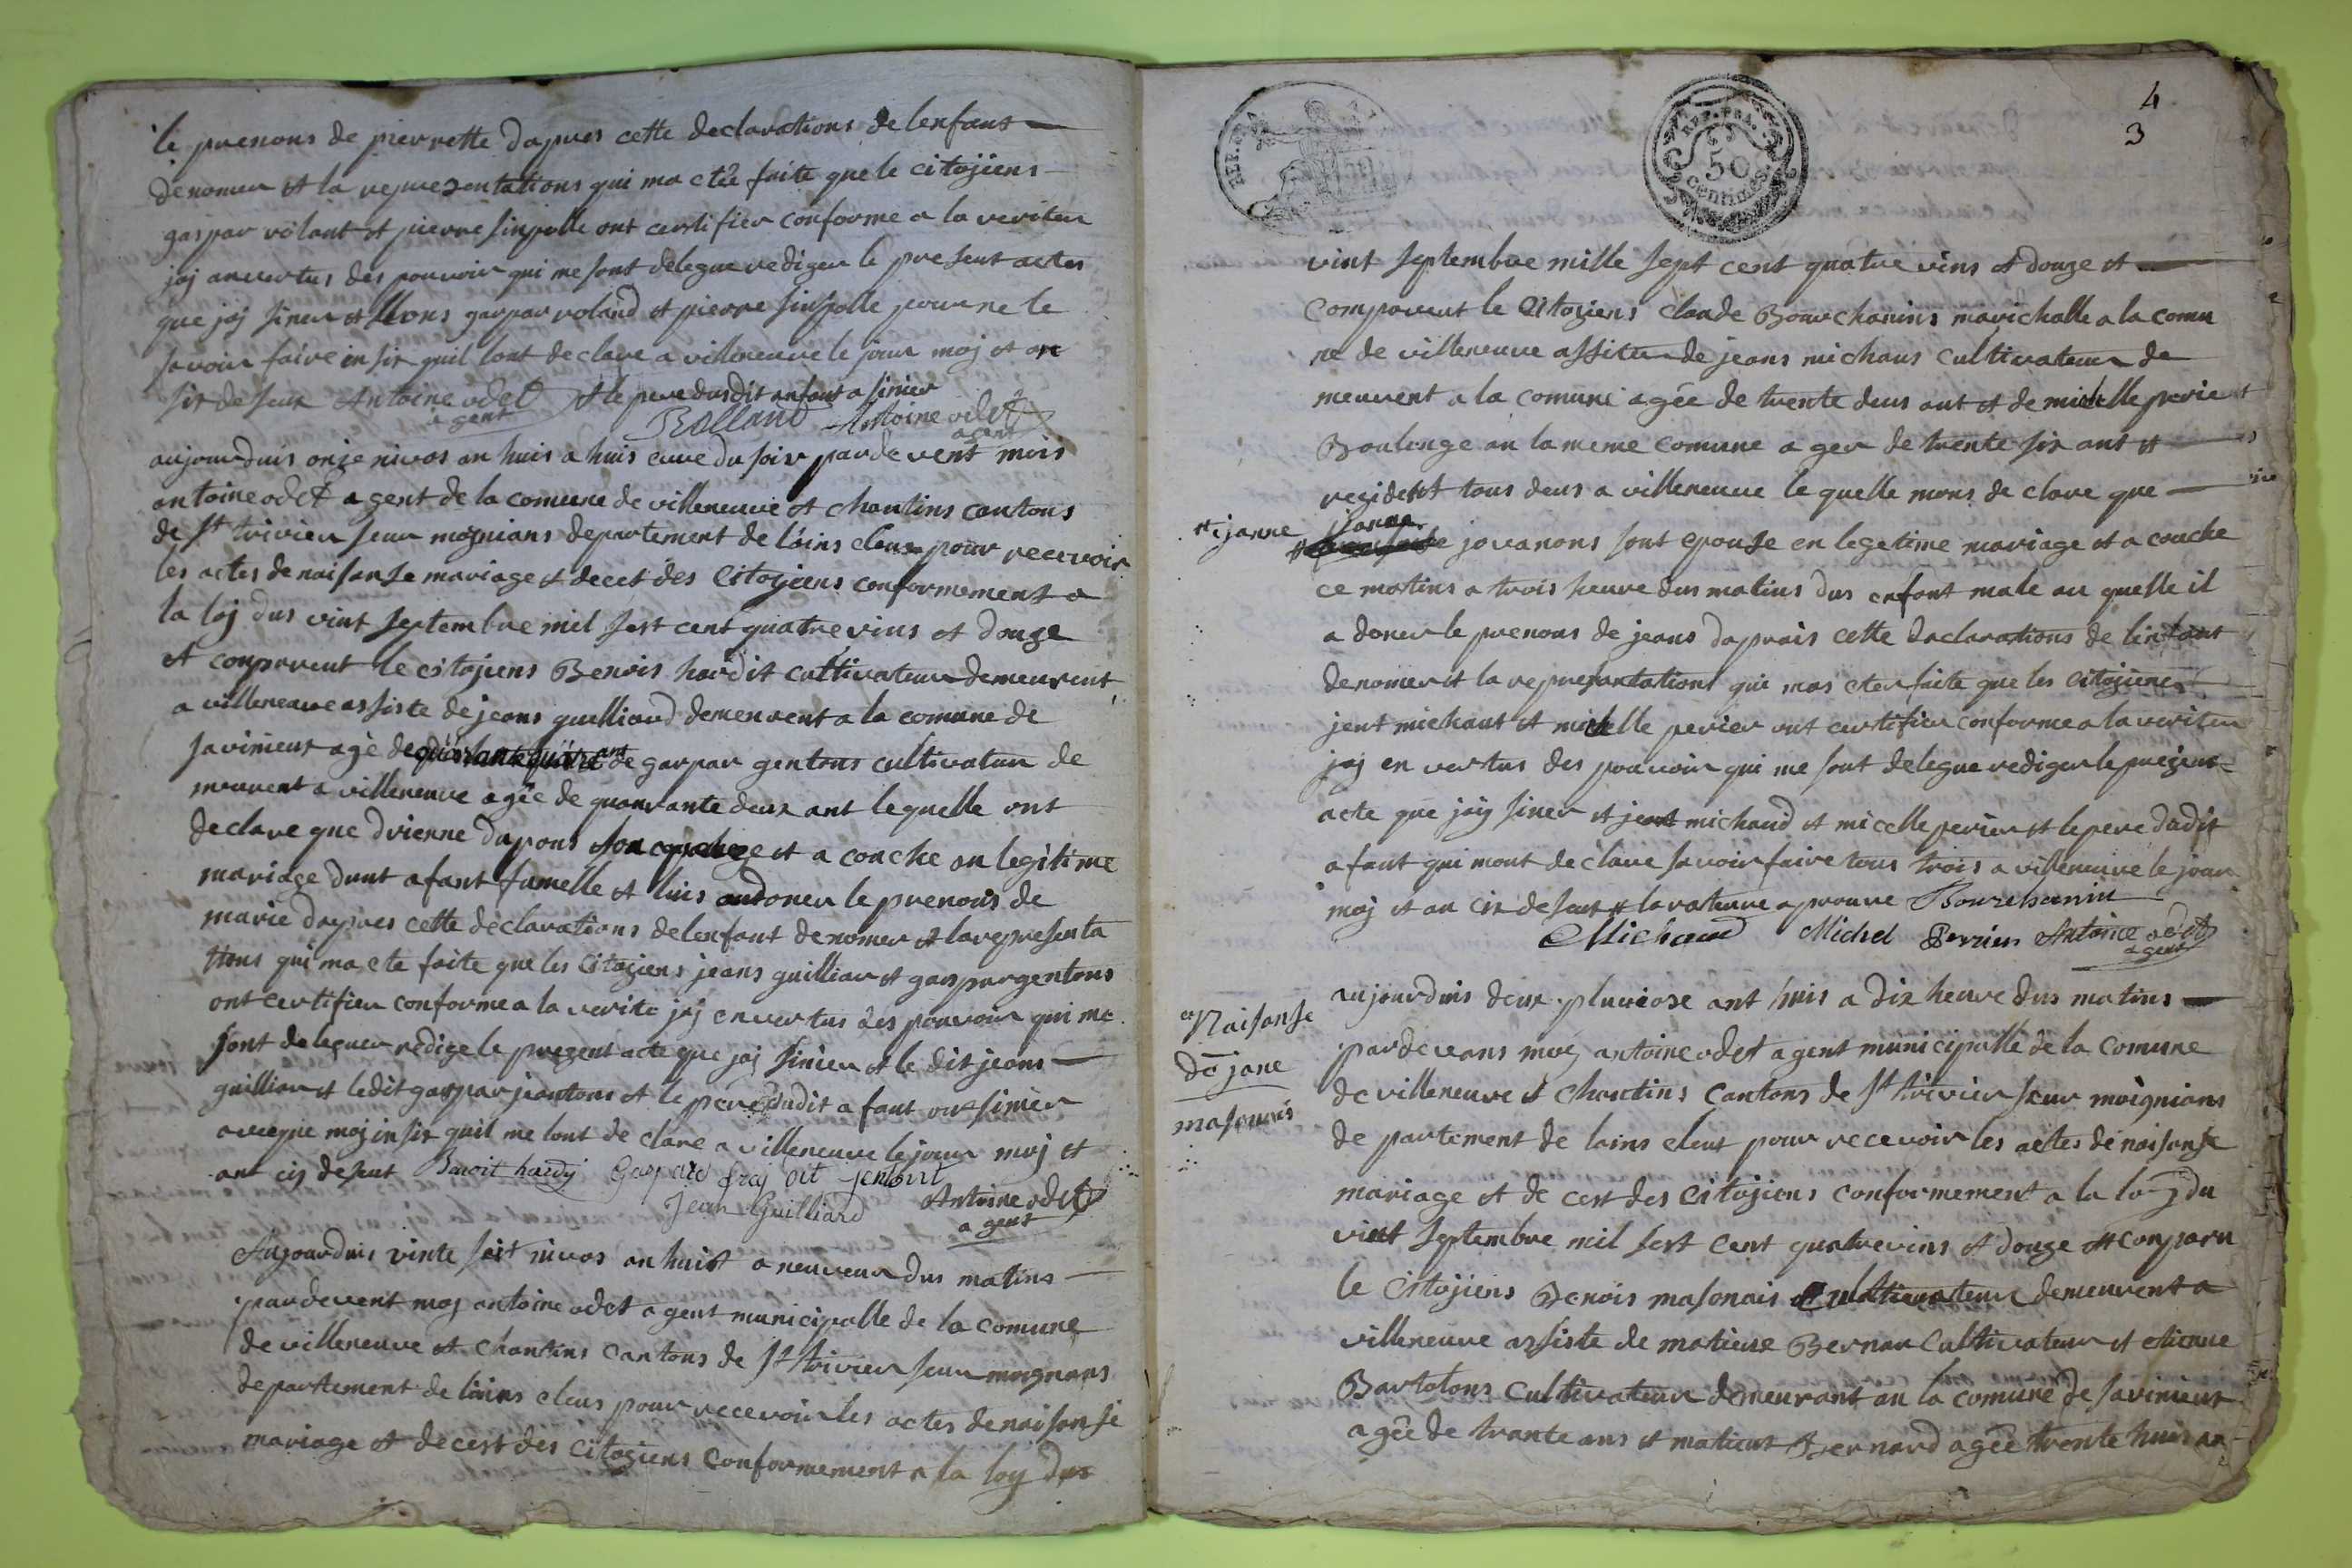 le prenons de pierrette dapres cette declarations de lenfant
denomer et la representations qui ma etée faite que le citojiens
gaspar rolant et pierre sinpolle ont certifier conforme a la veriter
jaj anvertus des pouvoir qui me sont delegue rediger le present actes
que jaj siner et Nons gaspar roland et pierre sinpolle pour ne le
savoir faire insis quil lont declare a villeneuve le jour moj et an
sis deseus Antoine odet et le pere dusdit anfant a sinier
agent Rolland Antoine odet
agent
aujourduis onze nivos an huis a huis eure du soir pardevent mois
antoine odet agent de la comune de villeneuve et chantins cantons
de St trivier seur mognians departement de lains eleus pour recevoir
les actes de naisanse mariage et decet des Citojiens conformement a
la loj dus vint septembre mil sest cent quatre vins et douze
et conparent le citojiens Benois hardit cultivateur demeurent
a villeneuve assiste de jeans guilliard demeurent a la comune de
savinieux agé de ant de gaspar gentons cultivateur de
meurent a villeneuve agée de quanrante deux ant lequelle ont
declare que drienne dapons son et a conche an legitime
mariage dunt afant fumelle et luis andoner le prenons de
marie dapres cette declarations delenfant denomer et la representa
tions qui ma ete faite que les Citojiens jeans guilliar et gaspar gentons
ont certifier conforme a la verite jaj envertus des pouvoir qui me
sont deleguer redige le prezent acte que jaj sinier et le dit jeans
guilliar et ledit gaspar jeantons et le pere dudit afant ont sinier
avecque moj insis quil me lont declare a villeneuve le jour moj et
an cij deseus Benoit hardy Gaspard fraj dit jentont
Jean Guilliard Antoine odet
agent
Aujourduis vinte seit nivos an huist a neuveur dus matins
pardevent moj antoine odet agent municipalle de la comune
de villeneuve et chantins cantons de St trivier seur mognans
departement de lains eleus pour recevoir les actes de naisanse
mariage et decest des Citojiens Conformement a la loy dus
4
3
REP. FRA.
50
REP. FRA.
50
centimes
vint septembre mille sept cent quatre vins et douze et
comparent le Citojiens claude Bourchanins marichalle a la comu
ne de villeneuve assiter de jeans michaus cultivateur de
meurent a la comune agée de trente deus ant et de michelle perier
Boulenge an la meme comune ager de trente six ant et
rezident tous deus a villeneuve le quelle mons declare que
et janne janne jovanons sont epouse en legetime mariage et a couche
ce matins a trois heure dus matins dus enfant male au quelle il
a doner le prenons de jeans daprais cette declarations de lenfant
denomer et la represantations qui mas eter faite que les Citojiens
jent michaut et michelle perier ont certifier conforme a la veriter
jaj en vertus des pouvoir qui me sont delegue rediger le prezent
acte que jaij siner et jent michaud et micelle perier et le pere dudit
afant qui mont declare savoir faire tous trois a villeneuve le jour
moj et an cix deseus et la rateure aprouve Bourchanin
Michaud Michel Perrier Antoine odet
agent
Naisanse
de jane
masonnais
aujourduis deux pluviose ant huis a dix heure dus matins
pardevans moy antoine odet agent municipalle de la comune
de villeneuve et chantins cantons de St trivier seur moignians
departement de lains eleut pour recevoir les actes de naisanse
mariage et decest des Citojiens conformement a la loy du
vint septembre mil sest cent quatrevins et douze et conparu
le Citojiens Benois masonais Cultivateur demeurent a
villeneuve assiste de matieux Bernar Cultivateur et etienne
Bartolons cultivateur demeurant an la comune de savinieux
agée de trante ans et matieus Bernard agée trente huis an